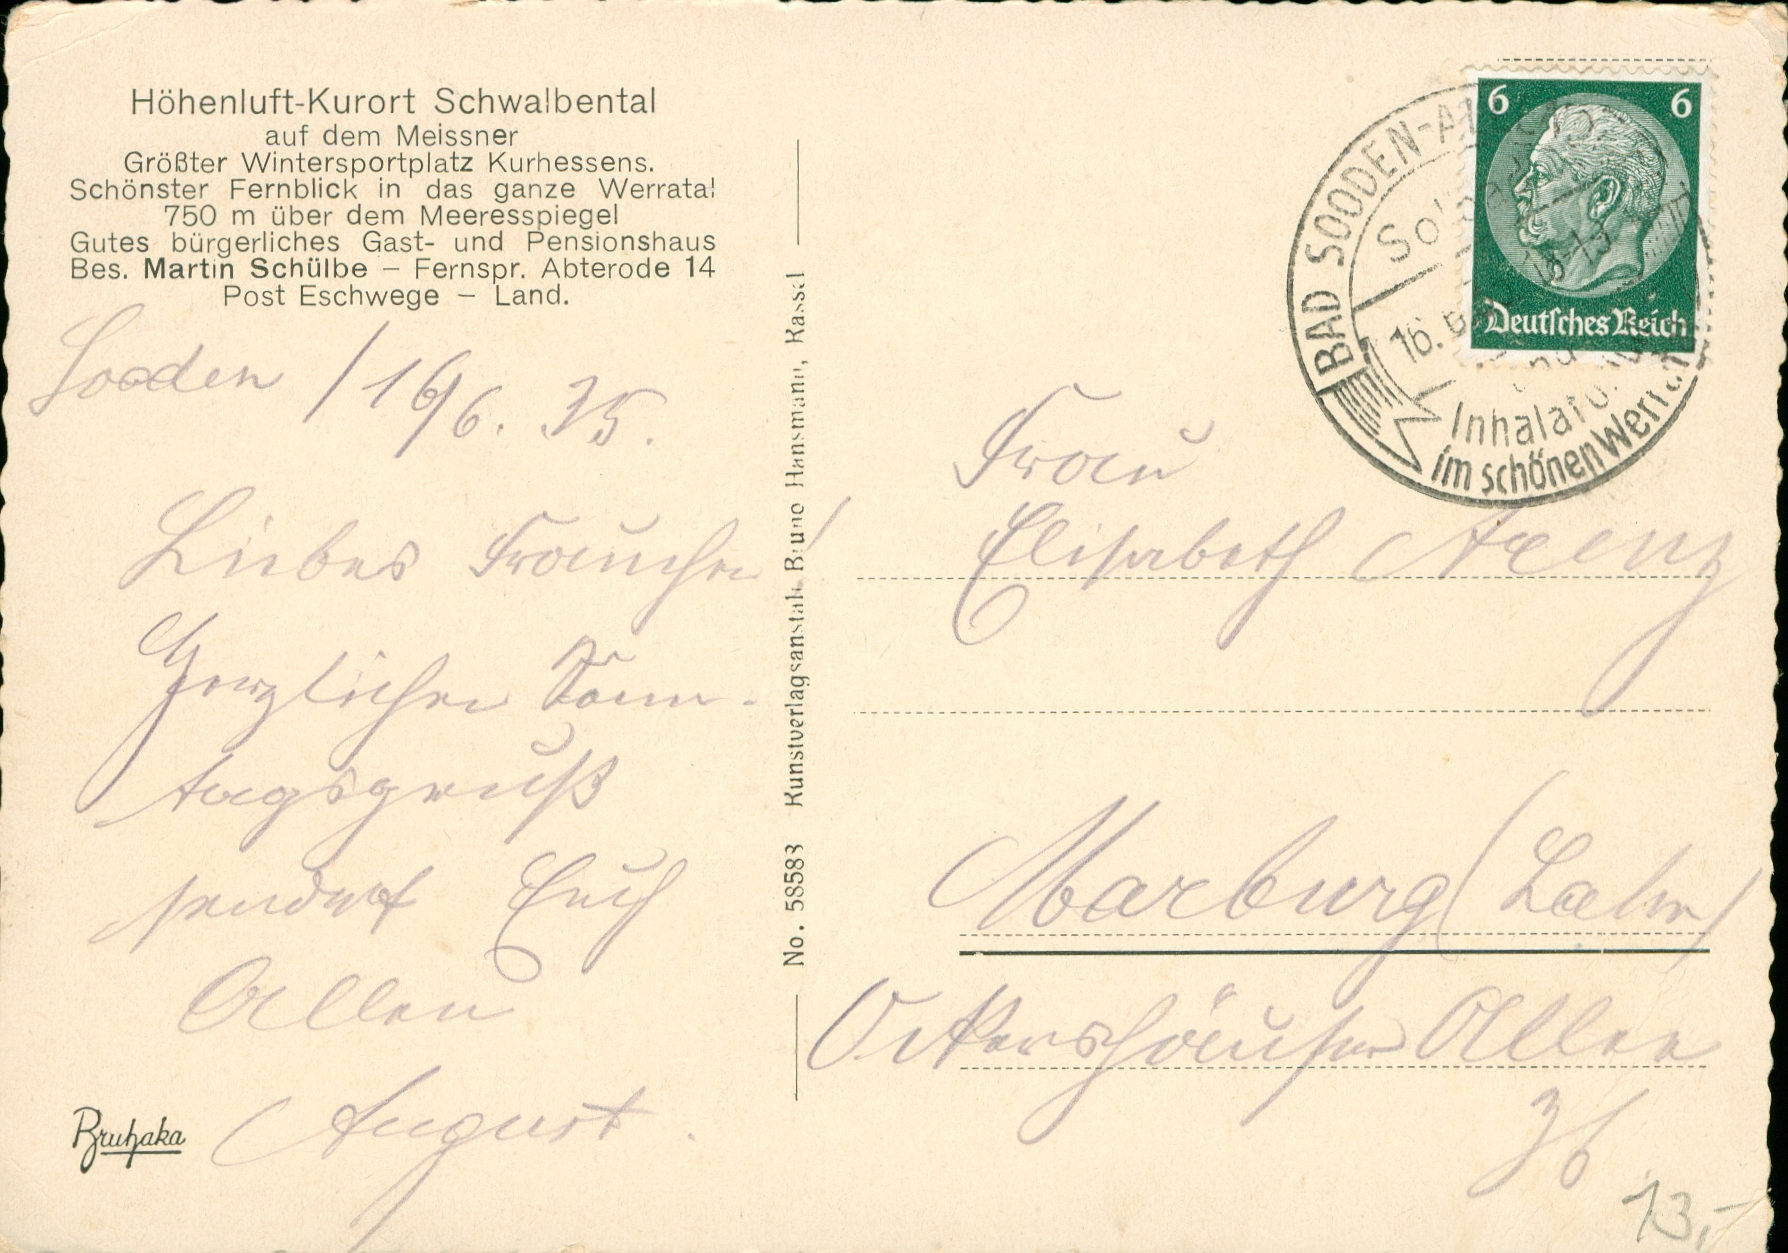 Höhenluft-Kurort Schwalbental
auf dem Meissner
Größter Wintersportplatz Kurhessens.
Schönster Fernblick in das ganze Werratal
750 m über dem Meeresspiegel
Gutes bürgerliches Gast- und Pensionshaus
Bes. Martin Schülbe – Fernspr. Abterode 14
Post Eschwege – Land.
Sooden / 16/6. 35.
Liebes Frauchen!
Herzlichen Sonn-
tagsgruß
sendet Euch
Allen
August.
Bruhaka
No. 58583 Kunstverlagsanstalt Bruno Hansmann, Kassel
6 6
Deutsches Reich
BAD SOODEN-
16.
Inhalator
im schönen Werra
Frau
Elisabeth Arenz
Marburg (Lahn)
Ockershäuser Allee
36
13,-